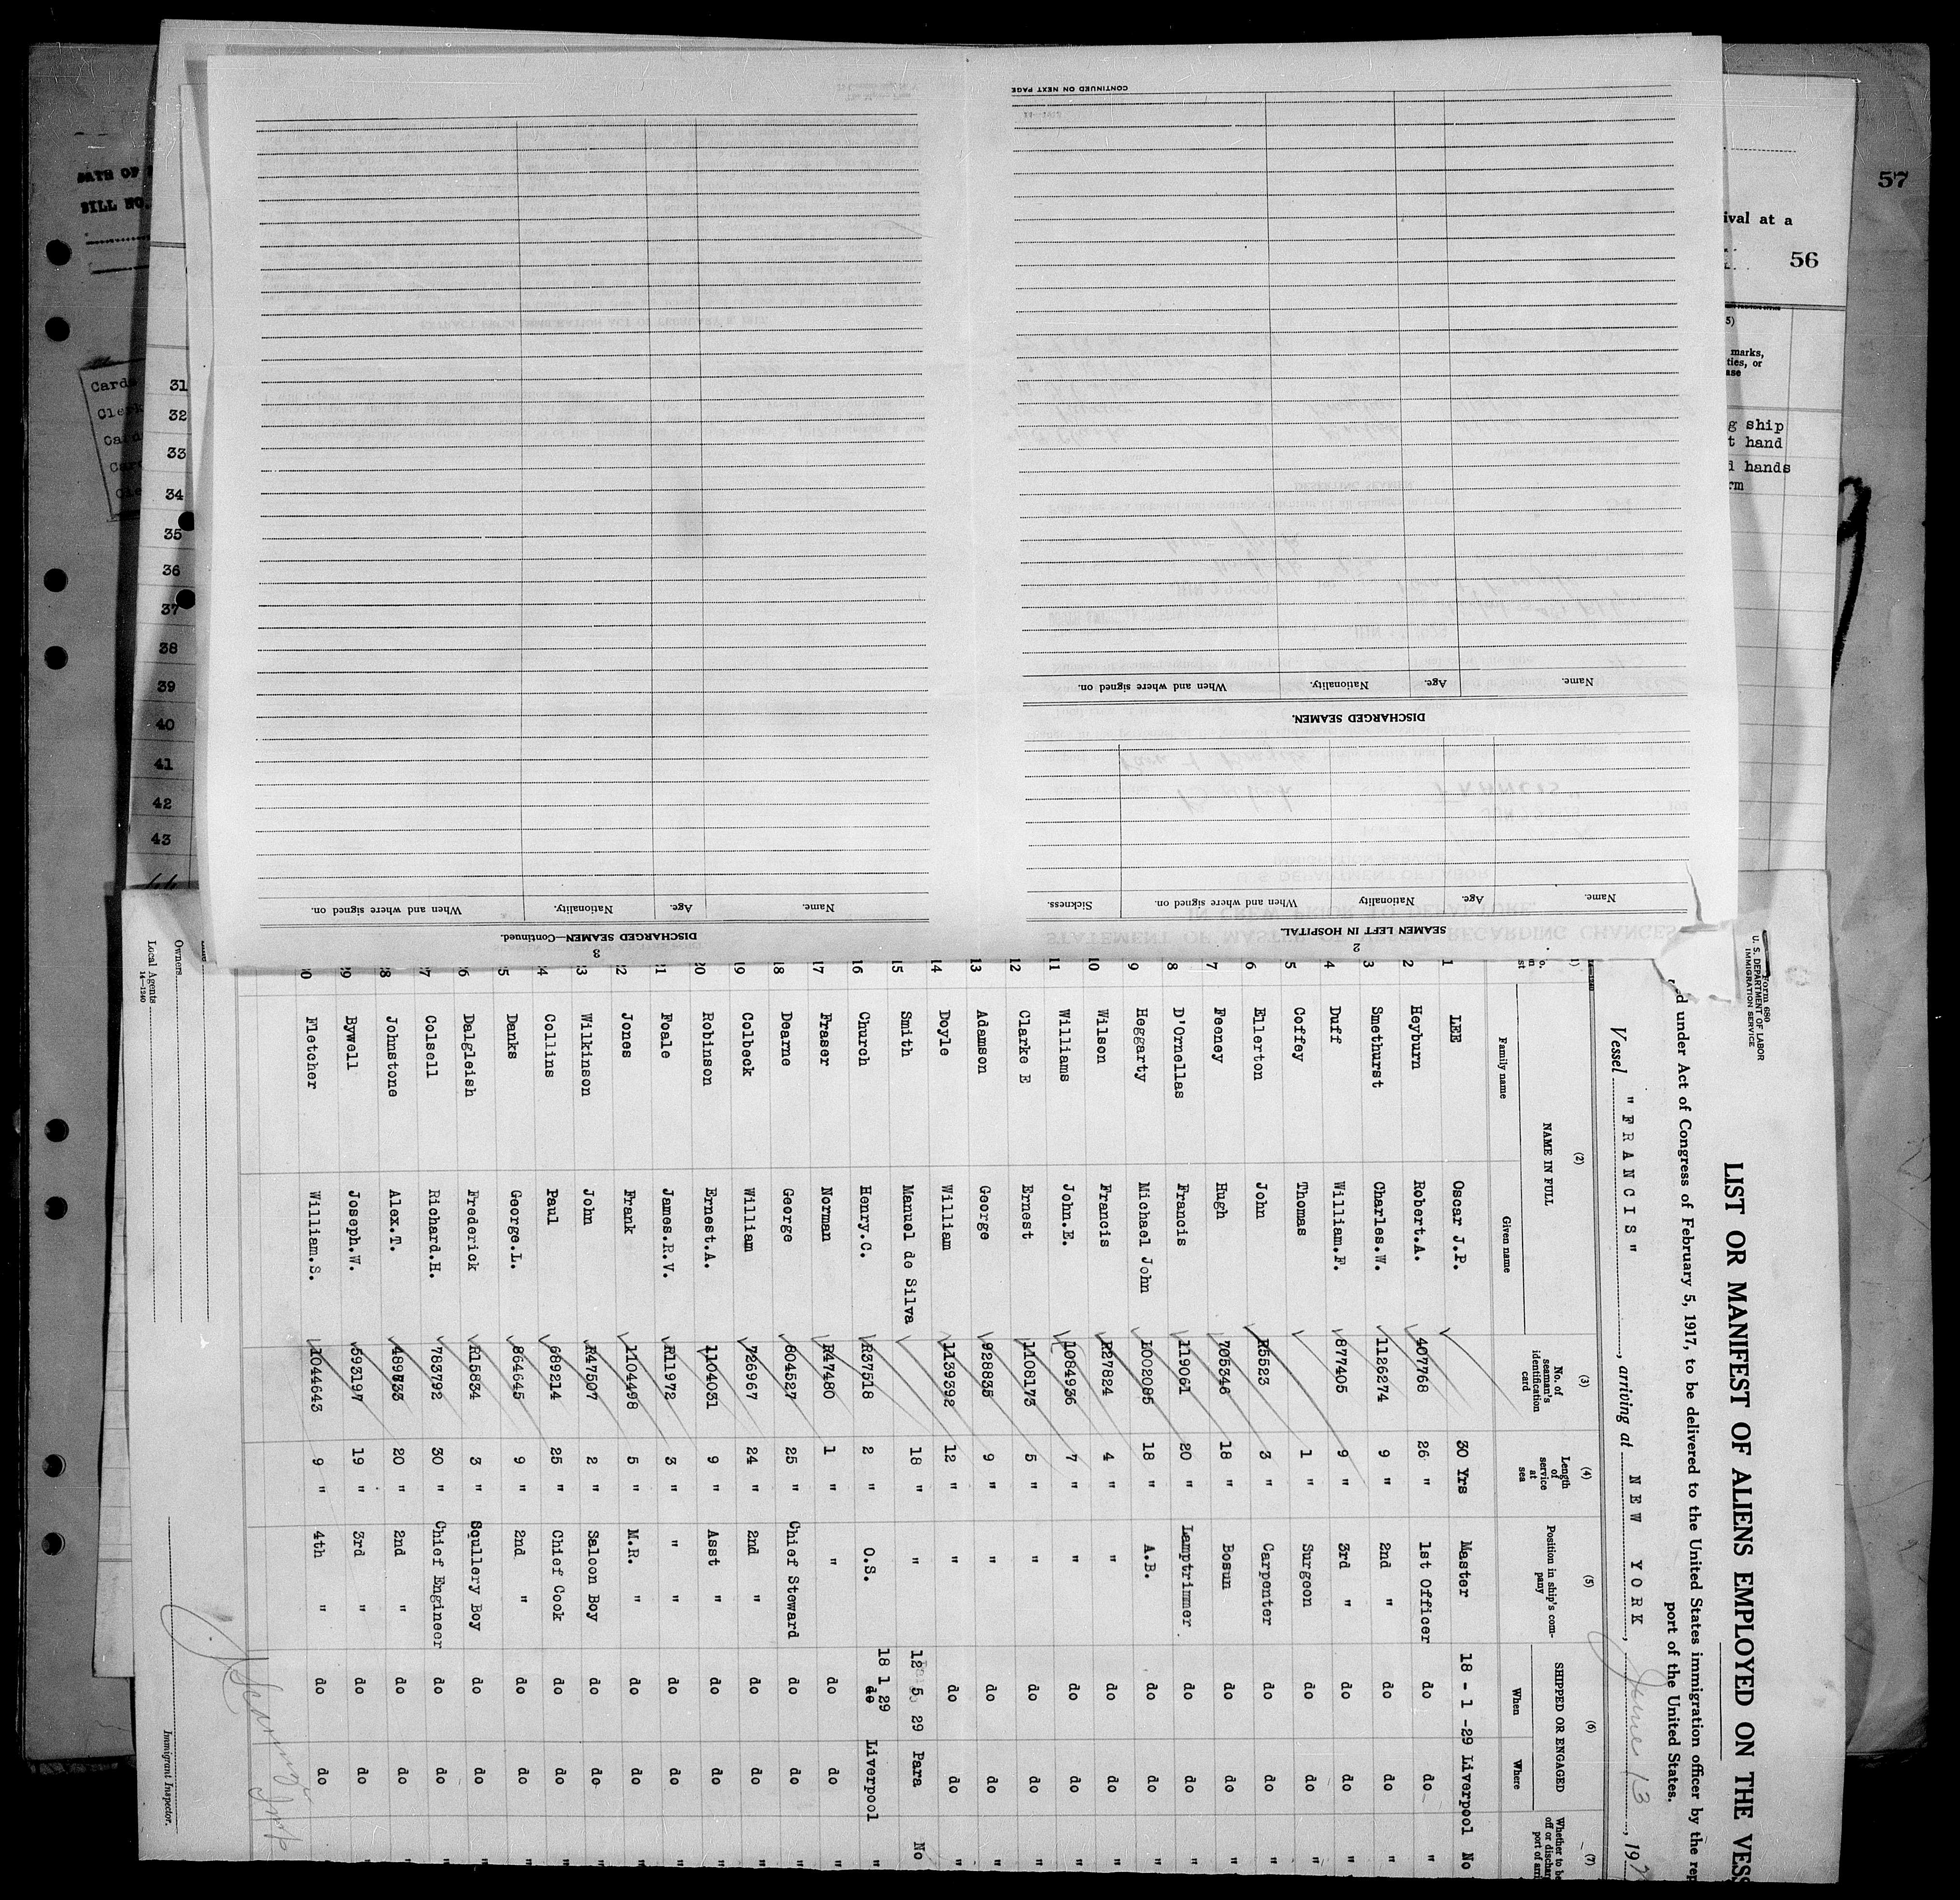 57
ival at a
56
5)
marks,
ties, or
ase
g ship
t hand
d hands
rm
DATE OF
BILL NO.
Cards
31
32
33
34
35
36
37
38
39
40
41
42
43
44
CONTINUED ON NEXT PAGE
When and where signed on.
Nationality.
Age.
Name.
DISCHARGED SEAMEN.
Sickness.
When and where signed on.
Nationality
Age.
Name.
SEAMEN LEFT IN HOSPITAL.
2
When and where signed on.
Nationality.
Age.
Name.
DISCHARGED SEAMEN—Continued.
3
Form 680
U. S. DEPARTMENT OF LABOR
IMMIGRATION SERVICE
LIST OR MANIFEST OF ALIENS EMPLOYED ON THE VESS
ed under Act of Congress of February 5, 1917, to be delivered to the United States immigration officer by the rep
port of the United States.
Vessel "FRANCIS", arriving at NEW YORK, June 13, 192
(2) (3) (4) (5) (6) (7)
NAME IN FULL
Family name
Given name
No. of seaman's identification card
Length of service at sea
Position in ship's company
SHIPPED OR ENGAGED
When
Where
1 LEE Oscar J.P. 30 Yrs Master 18 - 1 -29 Liverpool No
2 Heyburn Robert.A. 407768 26 " 1st Officer do do "
3 Smethurst Charles.W. 1126274 9 " 2nd " do do "
4 Duff William.F. 877405 9 " 3rd " do do "
5 Coffey Thomas 1 " Surgeon do do "
6 Ellerton John R5523 3 " Carpenter do do "
7 Feeney Hugh 705346 18 " Bosun do do "
8 D'Ornellas Francis 119061 20 " Lamptrimmer. do do "
9 Heggarty Michael John 1002085 18 " A.B. do do "
10 Wilson Francis R27824 4 " " do do "
11 Williams John.E. 1084936 7 " " do do "
12 Clarke E Ernest 1108173 5 " " do do "
13 Adamson George 928835 9 " " do do "
14 Doyle William 1139392 12 " " do do "
15 Smith Manuel de Silva 18 " " 12 5 29 Para No
16 Church Henry.C. R37518 2 " O.S. 18 1 29 do Liverpool "
17 Fraser Norman R47480 1 " " do do "
18 Dearne George 604527 25 " Chief Steward do do "
19 Colbeck William 726967 24 " 2nd " do do "
20 Robinson Ernest.A. 1104031 9 " Asst " do do "
21 Foale James.R.V. R11972 3 " " " do do "
22 Jones Frank 1104498 5 " M.R. " do do "
23 Wilkinson John R47507 2 " Saloon Boy do do "
24 Collins Paul 689214 25 " Chief Cook do do "
25 Danks George.L. 864645 9 " 2nd " do do "
26 Dalgleish Frederick R15834 3 " Scullery Boy do do "
27 Colsell Richard.H. 783792 30 " Chief Engineer do do "
28 Johnstone Alex.T. 20 " 2nd " do do "
29 Bywell Joseph.W. 593197 19 " 3rd " do do "
30 Fletcher William.S. 1044643 9 " 4th " do do "
Immigrant Inspector.
Owners
Local Agents
14—1240